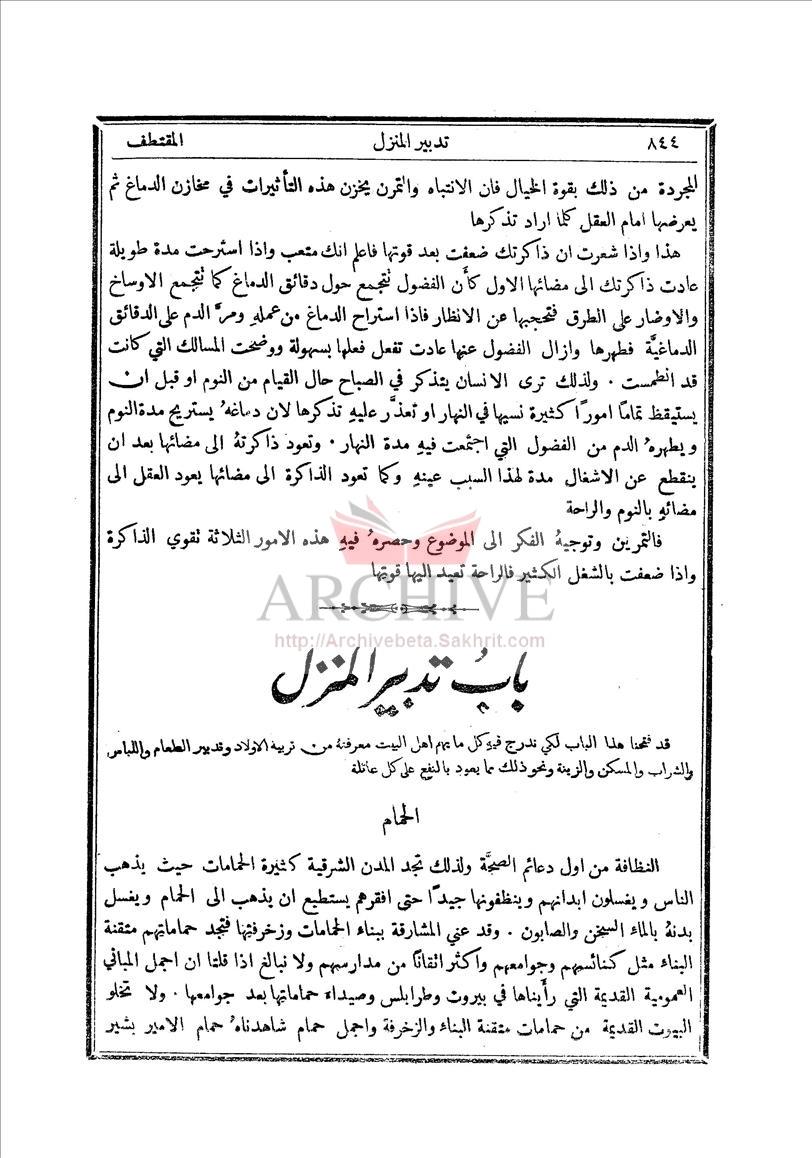 ٨٤٤ تدبير المنزل المقتطف
المجردة من ذلك بقوة الخيال فان الانتباه والتمرن يخزن هذه التأثيرات في مخازن الدماغ ثم
يعرضها امام العقل كلما اراد تذكرها
هذا واذا شعرت ان ذاكرتك ضعفت بعد قوتها فاعلم انك متعب واذا استرحت مدة طويلة
عادت ذاكرتك الى مضائها الاول كأن الفضول تتجمع حول دقائق الدماغ كما تتجمع الاوساخ
والاوضار على الطرق فتحجبها عن الانظار فاذا استراح الدماغ من عمله ومرَّ الدم على الدقائق
الدماغيَّة فطهرها وازال الفضول عنها عادت تفعل فعلها بسهولة ووضحت المسالك التي كانت
قد انطمست . ولذلك ترى الانسان يتذكر في الصباح حال القيام من النوم او قبل ان
يستيقظ تمامًا امورًا كثيرة نسيها في النهار او تعذَّر عليهِ تذكرها لان دماغهُ يستريح مدة النوم
ويطهرهُ الدم من الفضول التي اجتمعت فيهِ مدة النهار . وتعود ذاكرتهُ الى مضائها بعد ان
ينقطع عن الاشغال مدة لهذا السبب عينهِ وكما تعود الذاكرة الى مضائها يعود العقل الى
مضائهِ بالنوم والراحة
فالتمرين وتوجيهُ الفكر الى الموضوع وحصرهُ فيهِ هذه الامور الثلاثة تقوي الذاكرة
واذا ضعفت بالشغل الكثير فالراحة تعيد اليها قوتها
ARCHIVE
http://Archivebeta.Sakhrit.com
بابُ تدبير المنزل
قد فتحنا هذا الباب لكي ندرج فيهِ كل ما يهم اهل البيت معرفتهُ من تربية الاولاد وتدبير الطعام واللباس
والشراب والمسكن والزينة ونحو ذلك مما يعود بالنفع على كل عائلة
الحمام
النظافة من اول دعائم الصحَّة ولذلك تجد المدن الشرقية كثيرة الحمامات حيث يذهب
الناس ويغسلون ابدانهم وينظفونها جيدًا حتى افقرهم يستطيع ان يذهب الى الحمام ويغسل
بدنهُ بالماء السخن والصابون . وقد عني المشارقة ببناء الحمامات وزخرفتها فتجد حماماتهم متقنة
البناء مثل كنائسهم وجوامعهم واكثر اتقانًا من مدارسهم ولا نبالغ اذا قلنا ان اجمل المباني
العمومية القديمة التي رأيناها في بيروت وطرابلس وصيداء حماماتها بعد جوامعها . ولا تخلو
البيوت القديمة من حمامات متقنة البناء والزخرفة واجمل حمام شاهدناهُ حمام الامير بشير